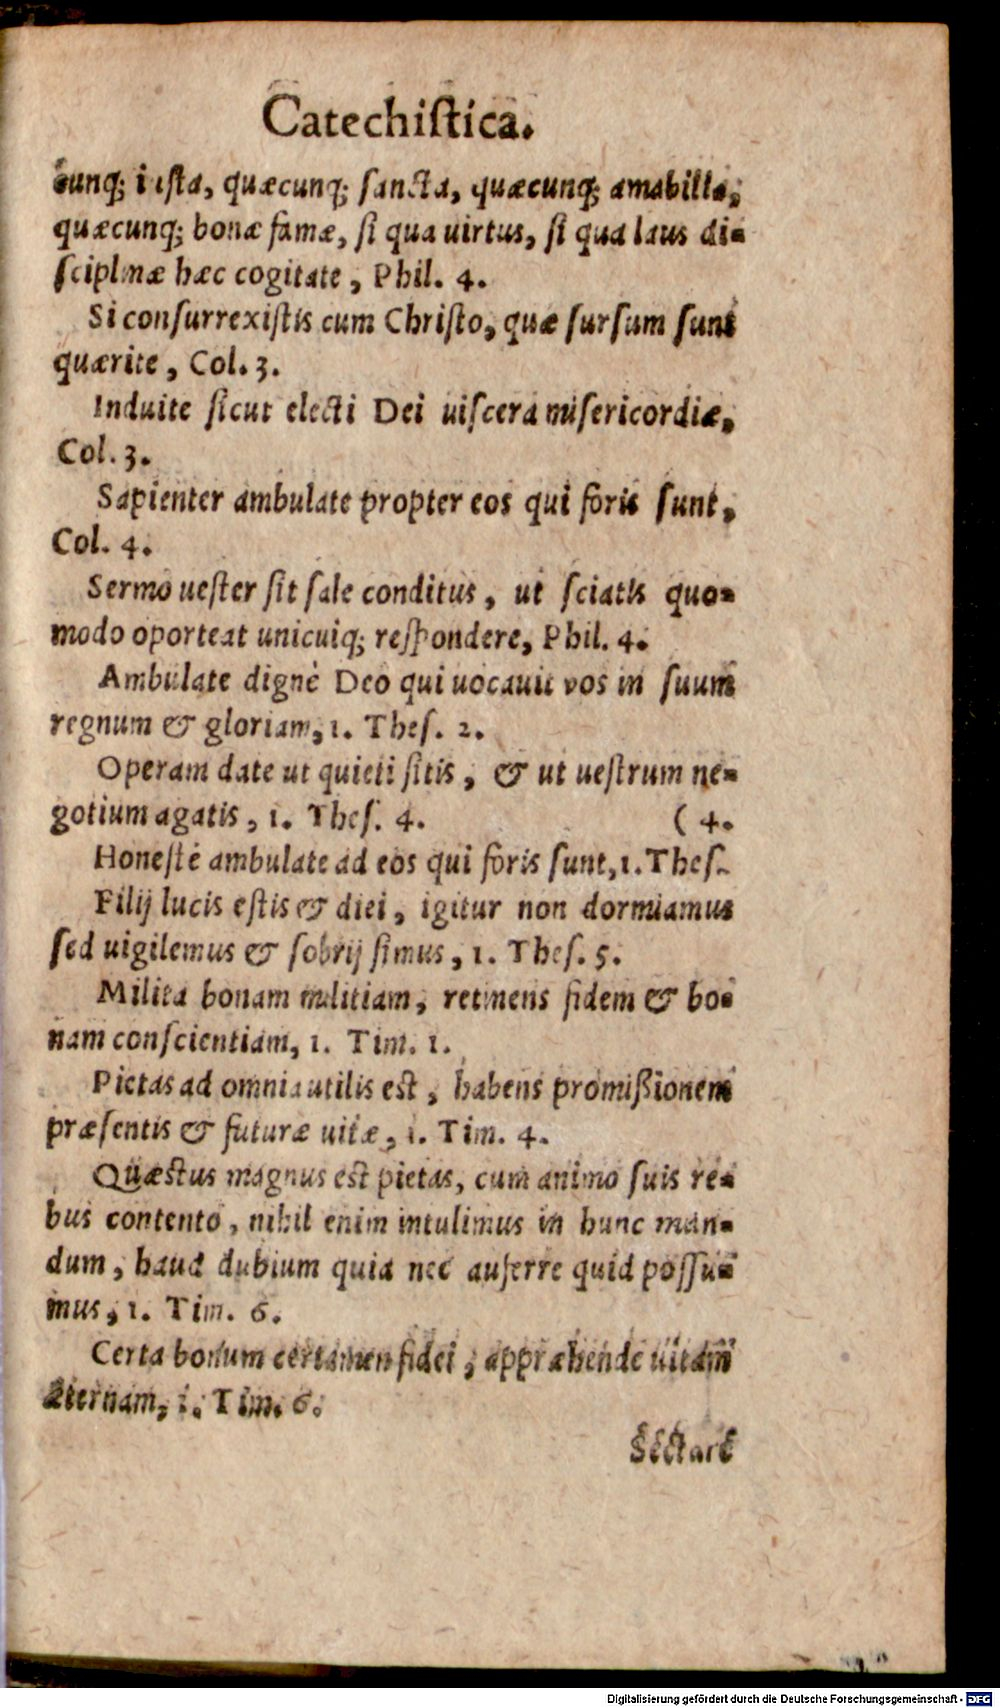 Catechiſtica.
cunq; iuſta, quæcunq; ſancta, quæcunq; amabilia,
quæcunq; bonæ famæ, ſi qua uirtus, ſi qua laus di=
ſciplinæ hæc cogitate, Phil. 4.
Si conſurrexiſtis cum Chriſto, quæ ſurſum ſunt
quærite, Col. 3.
Induite ſicut electi Dei uiſcera miſericordiæ,
Col. 3.
Sapienter ambulate propter eos qui foris ſunt,
Col. 4.
Sermo ueſter ſit ſale conditus, ut ſciatis quo=
modo oporteat unicuiq; reſpondere, Phil. 4.
Ambulate dignè Deo qui uocauit vos in ſuum
regnum & gloriam, 1. Theſ. 2.
Operam date ut quieti ſitis, & ut ueſtrum ne=
gotium agatis, 1. Theſ. 4. ( 4.
Honeſtè ambulate ad eos qui foris ſunt, 1. Theſ.
Filij lucis eſtis & diei, igitur non dormiamus
ſed uigilemus & ſobrij ſimus, 1. Theſ. 5.
Milita bonam militiam, retinens fidem & bo=
nam conſcientiam, 1. Tim. 1.
Pietas ad omnia utilis eſt, habens promißionem
præſentis & futuræ uitæ, 1. Tim. 4.
Quæſtus magnus eſt pietas, cum animo ſuis re=
bus contento, nihil enim intulimus in hunc mun=
dum, haud dubium quia nec auferre quid poſſu=
mus, 1. Tim. 6.
Certa bonum certamen fidei, appræhende uitam
æternam, 1. Tim. 6.
Sectare
Digitalisierung gefördert durch die Deutsche Forschungsgemeinschaft - DFG